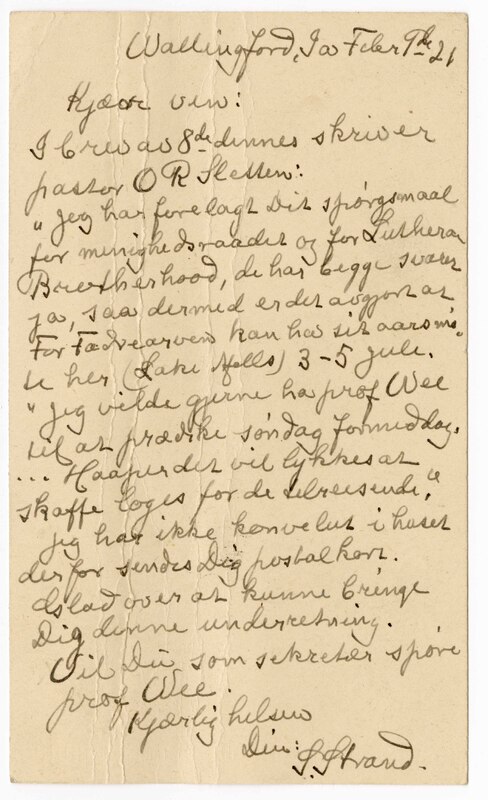 Wallingford, Ia Febr 9de 21
Kjære ven:
I brev av 8de dennes skriver
pastor O R Sletten:
"Jeg har forelagt Dit spørgsmaal
for menighedsraadet og for Lutheran
Brotherhood, de har begge svaret
ja, saa dermed er det avgjort at
For Fædrearven kan ha sit aarsmø-
te her (Lake Mills) 3-5 juli.
"Jeg vilde gjerne ha prof Wee
til at prædike søndag formiddag.
... Haaper det vil lykkes at
skaffe loges for de tilreisende."
Jeg har ikke konvelut i huset
derfor sendes Dig postalkort.
Glad over at kunne bringe
Dig denne underretning.
Vil Du som sekretær spøre
prof Wee.
Kjærlig hilsen
Din:
S. Strand.